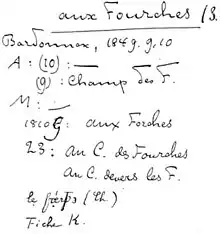 aux Fourches /S.
Bardonnex, 1849. g. 10
A : (10) : —
(g) : Champ des F.
M : —
1810 G : aux Forches
23 : Au C. des Fourches
Au C. devers les F.
le (Th.)
Fiche K.